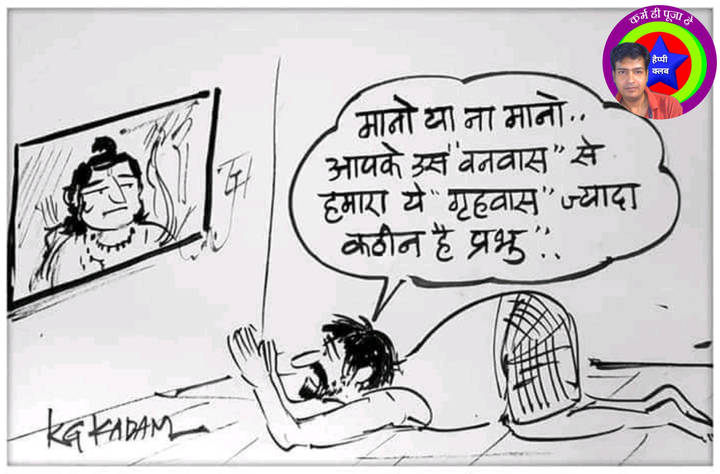 कर्म ही पूजा है
हैप्पी
क्लब
मानो या ना मानो..
आपके उस "वनवास" से
हमारा ये "गृहवास" ज्यादा
कठीन है प्रभु"..
KG KADAM